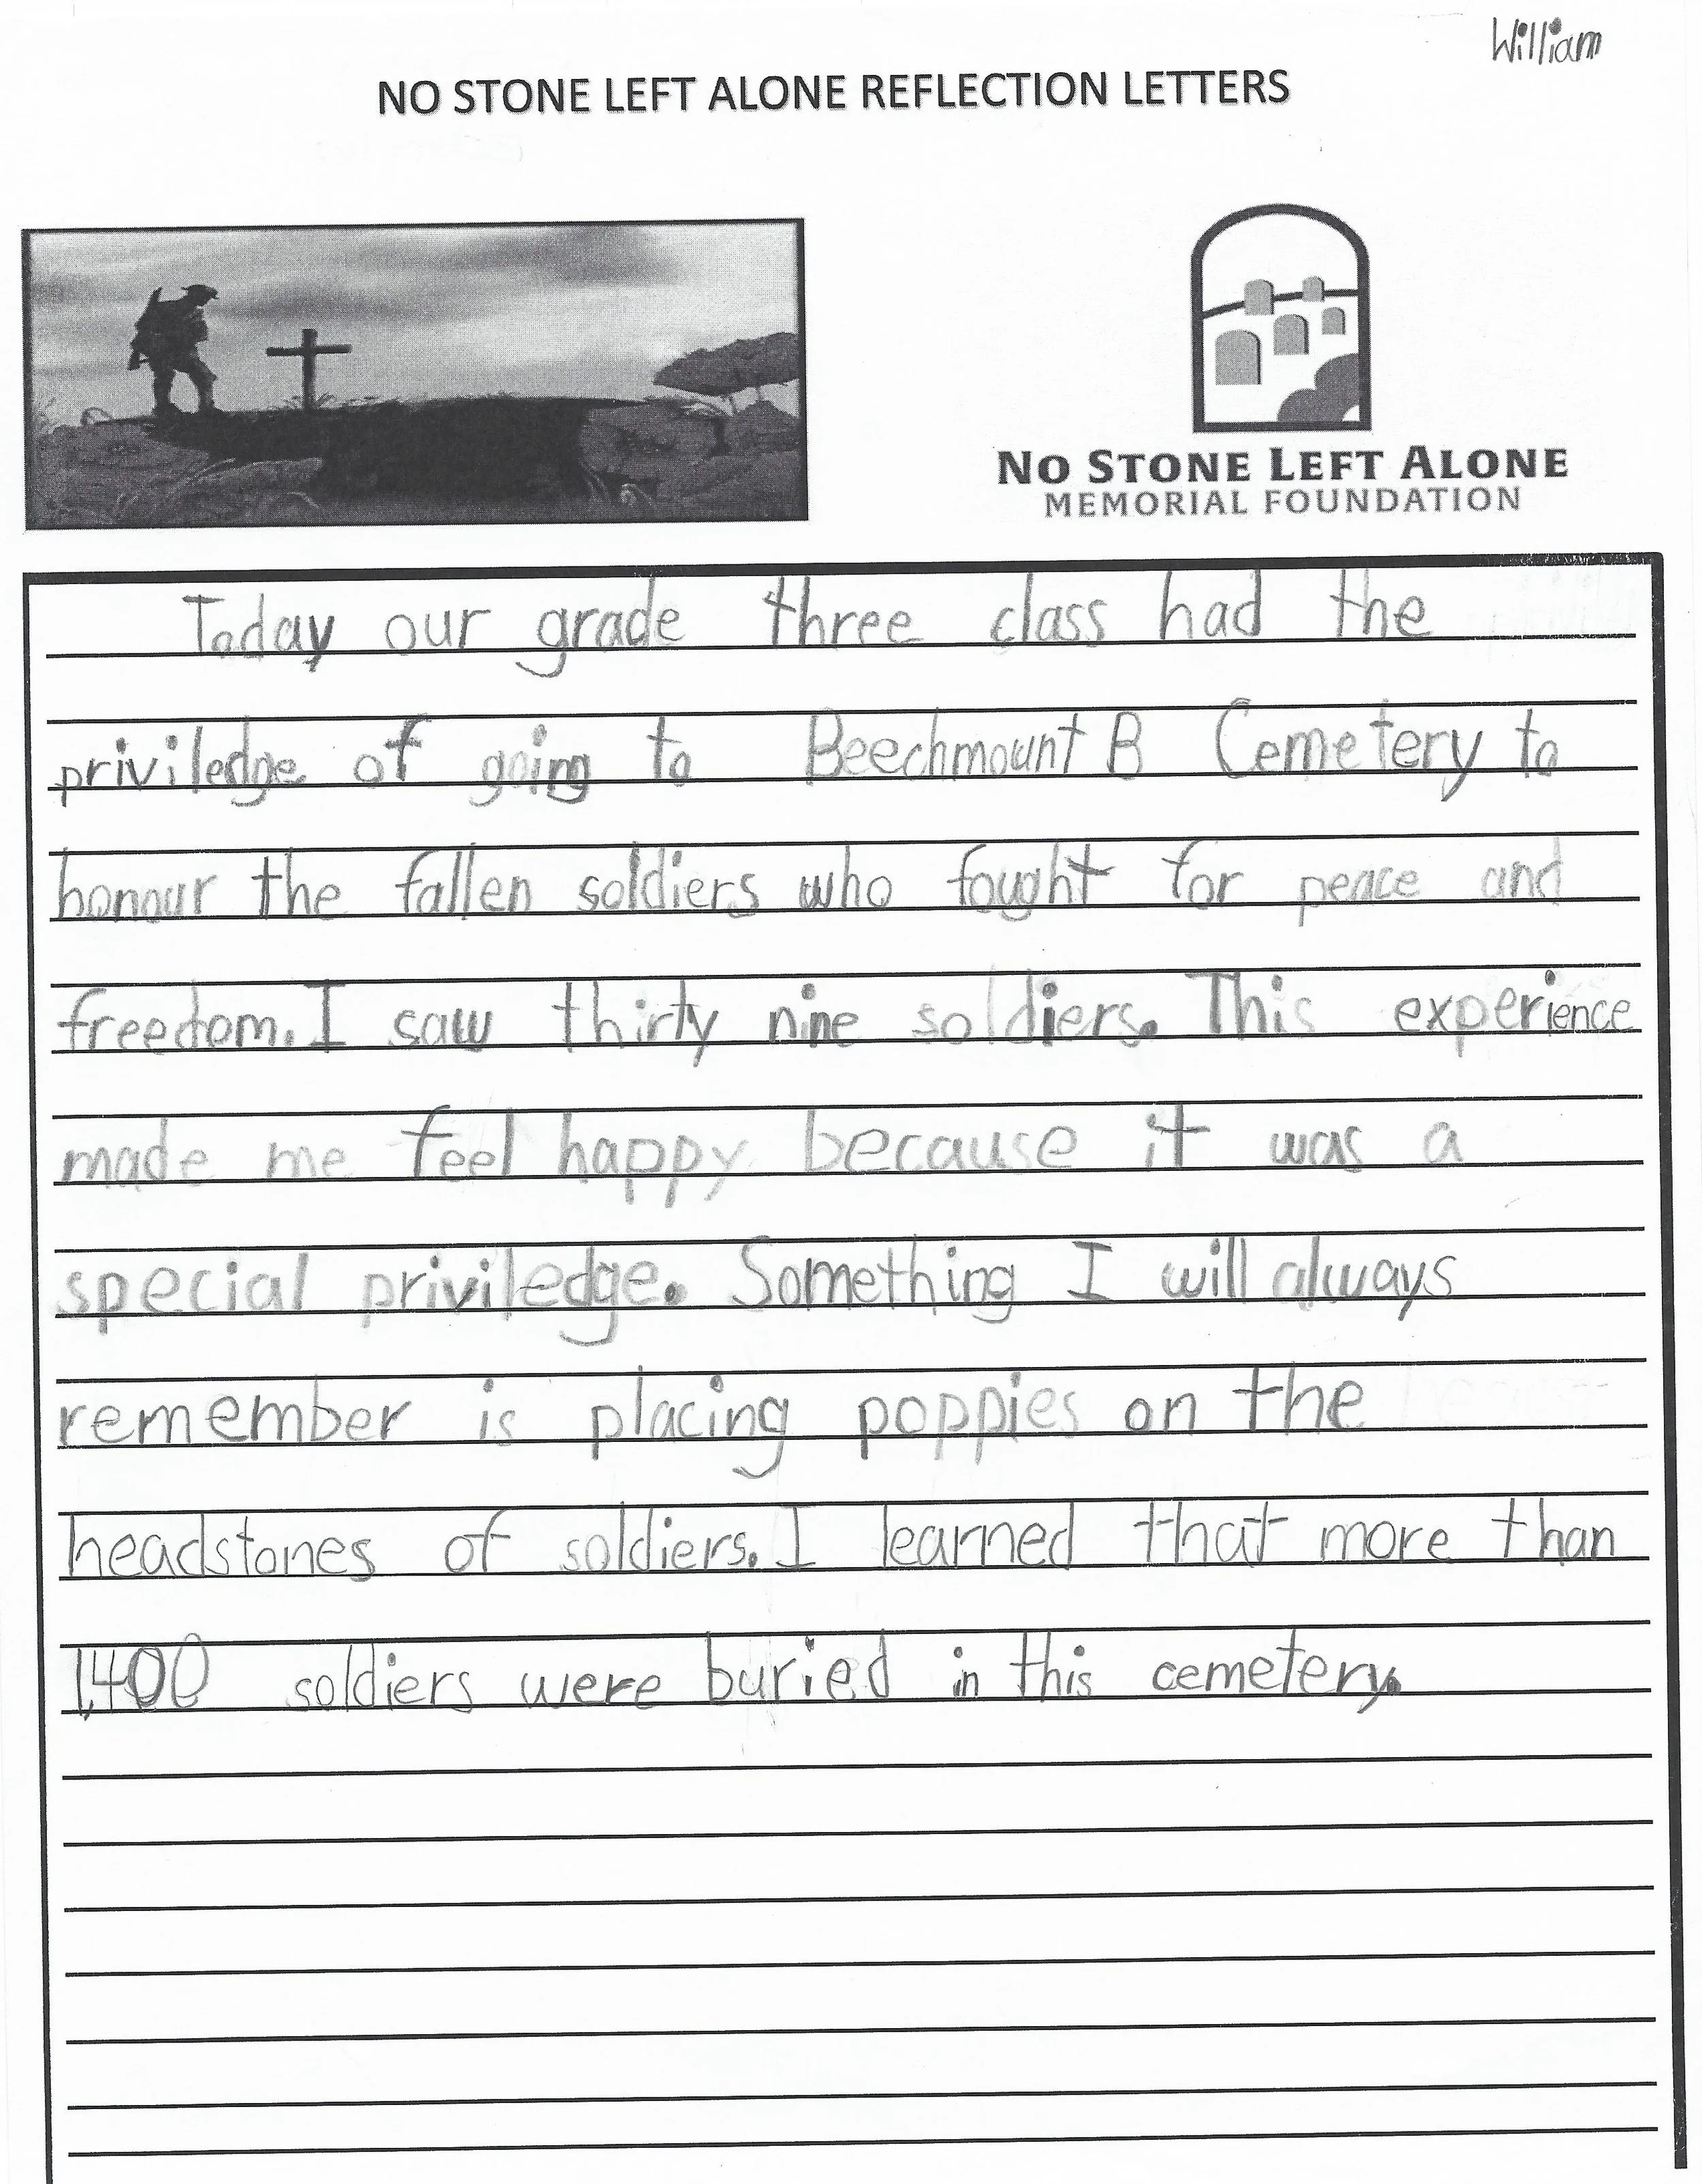 William
NO STONE LEFT ALONE REFLECTION LETTERS
NO STONE LEFT ALONE
MEMORIAL FOUNDATION
Today our grade three class had the
priviledge of going to Beechmount B Cemetery to
honour the fallen soldiers who fought for peace and
freedom. I saw thirty nine soldiers. This experience
made me feel happy because it was a
special priviledge. Something I will always
remember is placing poppies on the
headstones of soldiers. I learned that more than
1,400 soldiers were buried in this cemetery.